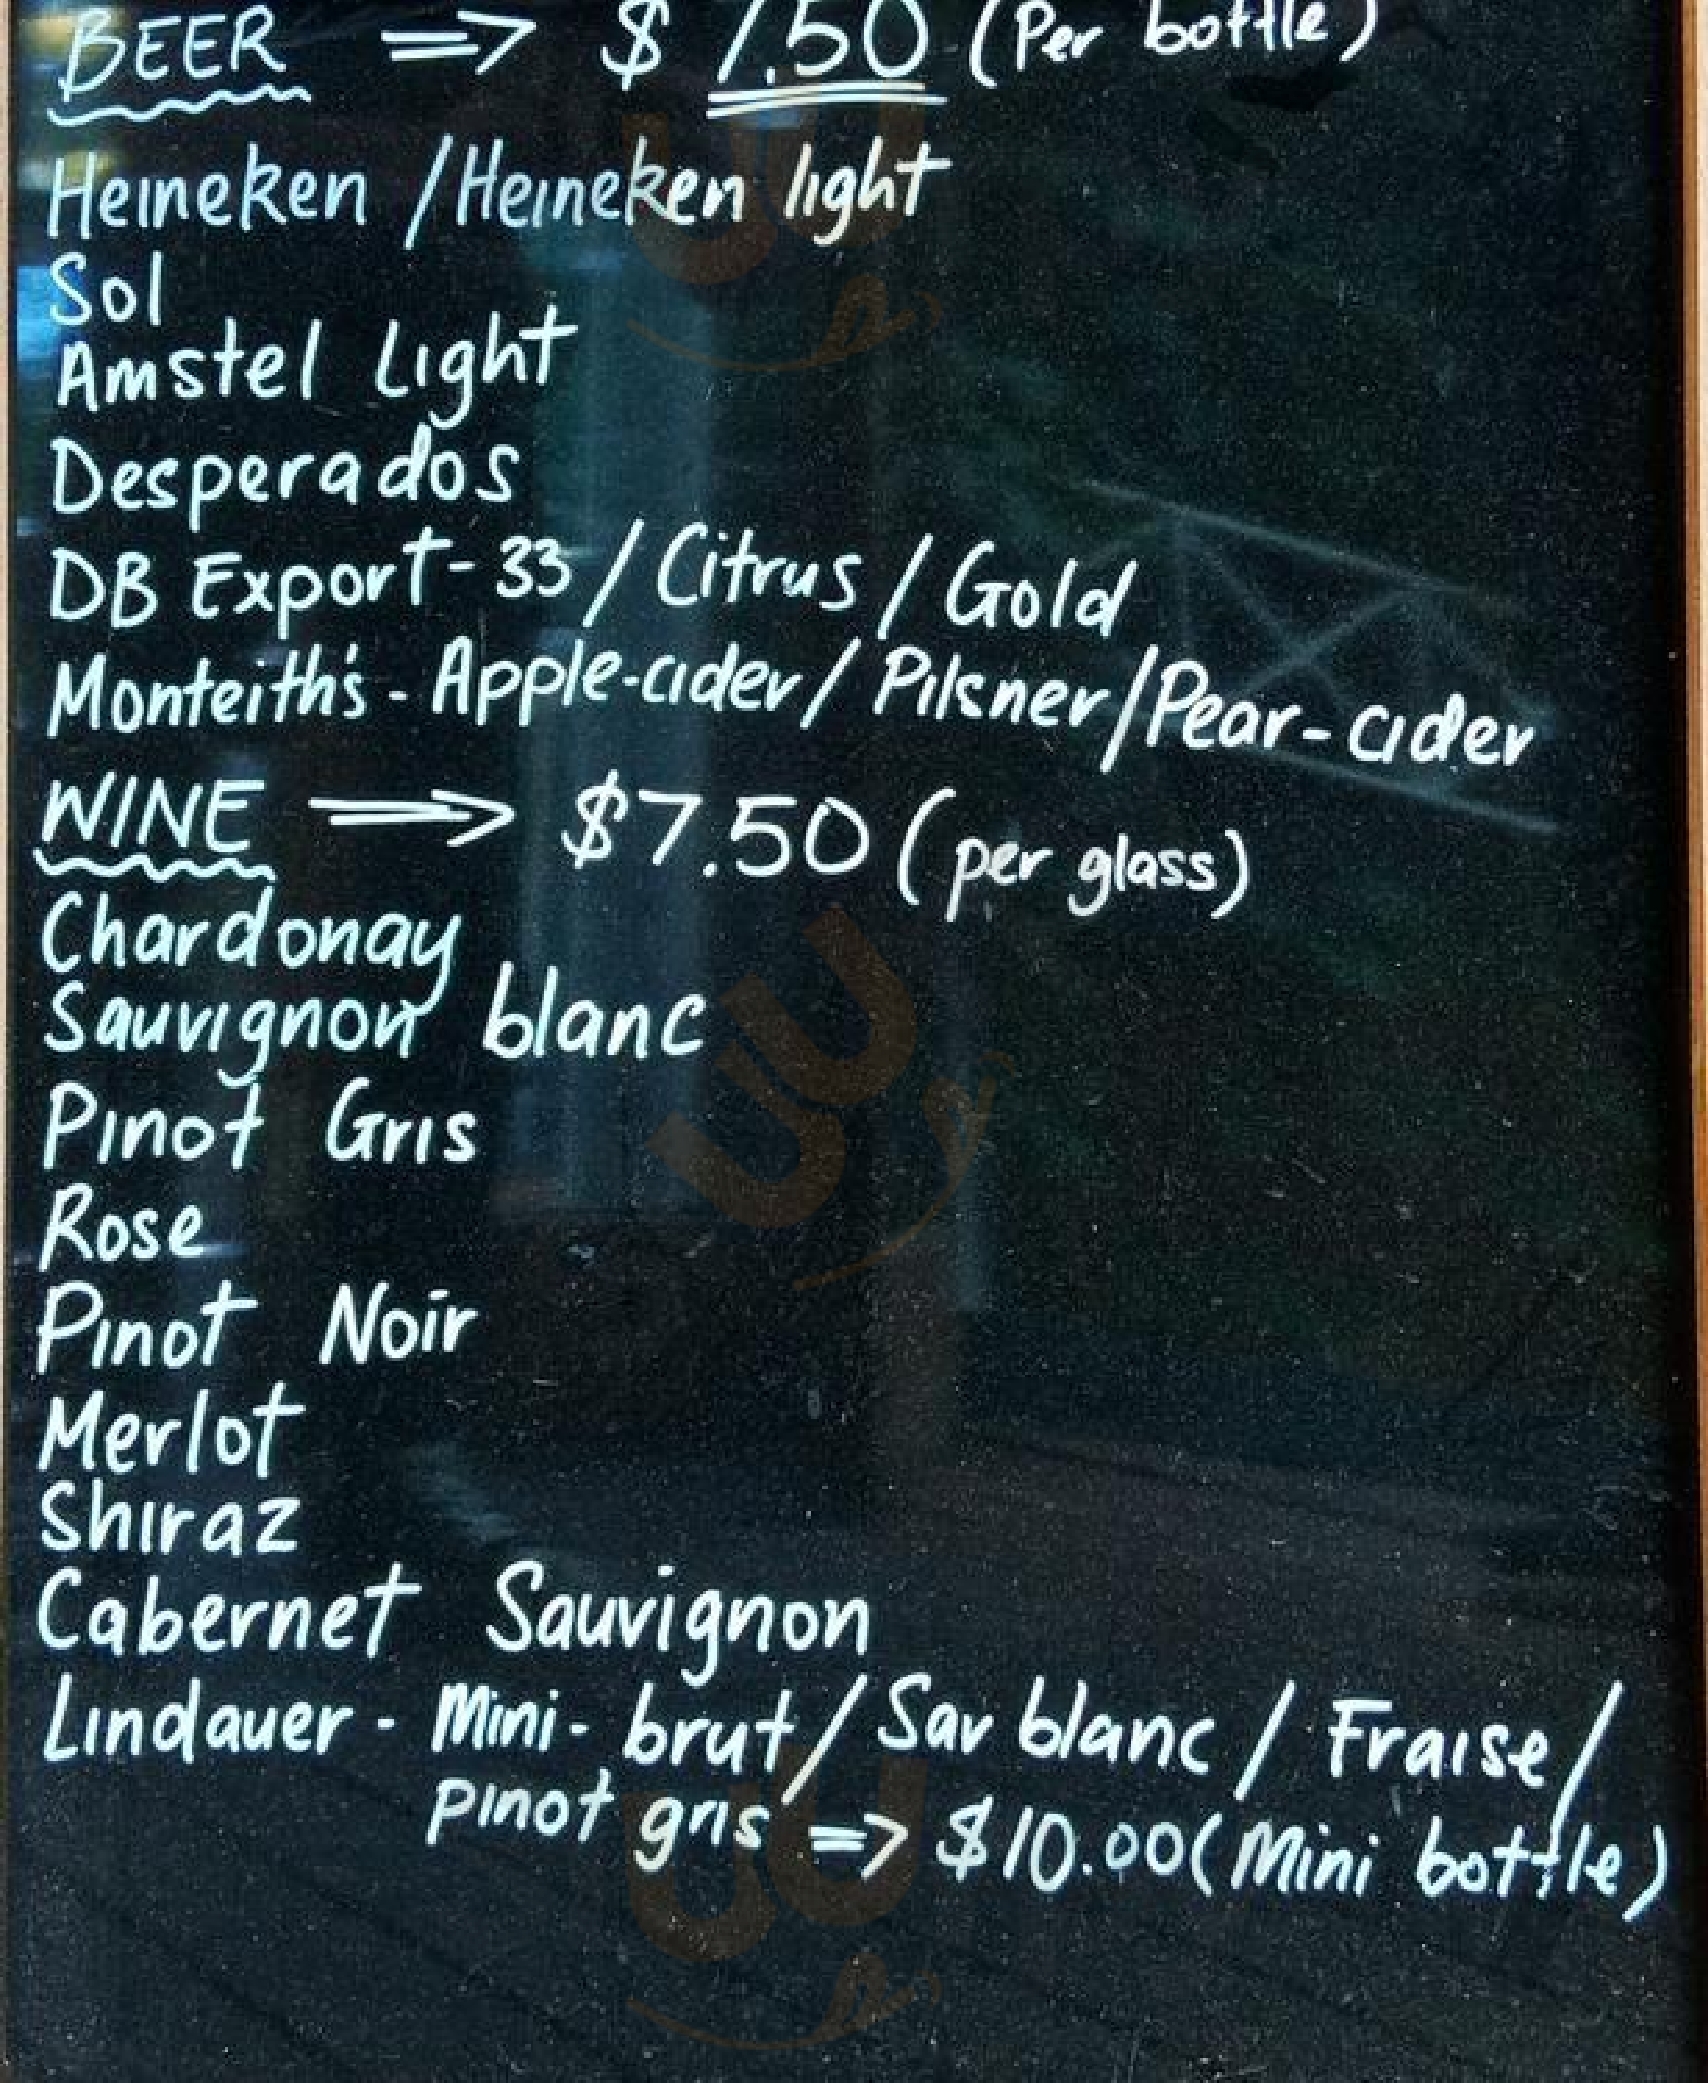 BEER => $ 7.50 (Per bottle)
Heineken / Heineken light
Sol
Amstel Light
Desperados
DB Export - 33 / Citrus / Gold
Monteith's - Apple-cider / Pilsner / Pear-cider
WINE => $7.50 (per glass)
Chardonay
Sauvignon blanc
Pinot Gris
Rose
Pinot Noir
Merlot
Shiraz
Cabernet Sauvignon
Lindauer - Mini - brut / Sav blanc / Fraise /
pinot gris => $10.00 (Mini bottle)